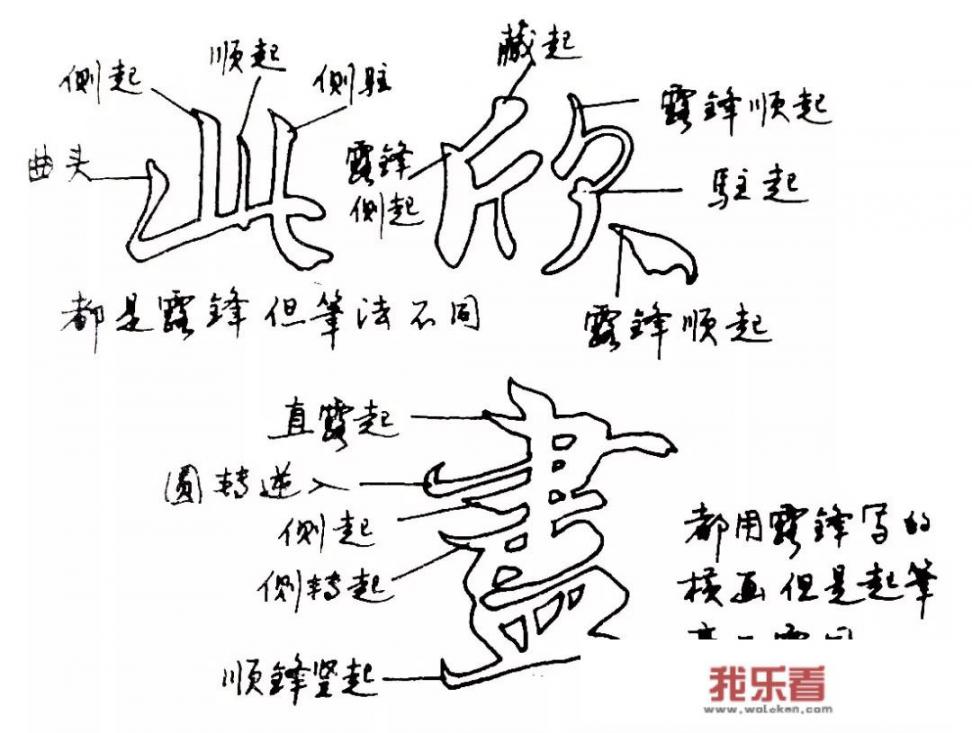 藏起
顺起
侧起
侧驻
露鋒顺起
曲头
露鋒
侧起
駐起
都是露鋒但筆法不同
露鋒顺起
直露起
圆转逆入
侧起
侧转起
都用露鋒写的
横画但是起筆
顺鋒竖起
我乐看
www.woleken.com